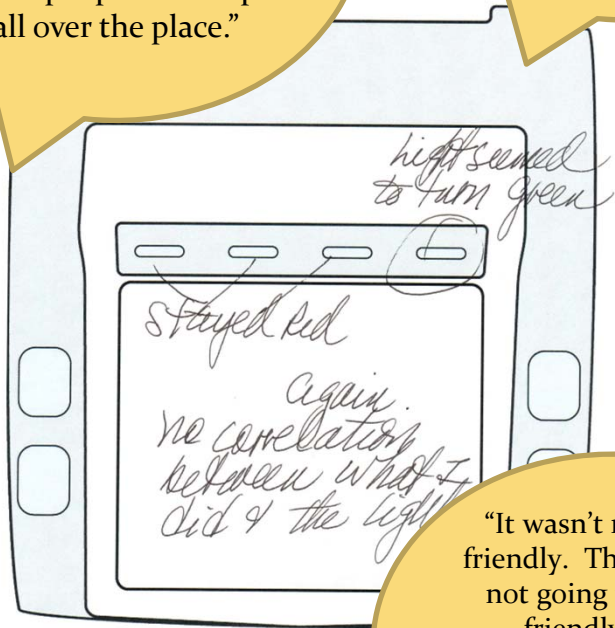 all over the place.”
Light seemed
to turn green
stayed red
again.
no correlation
between what I
did & the light
“It wasn’t
friendly. Th
not going
friendly